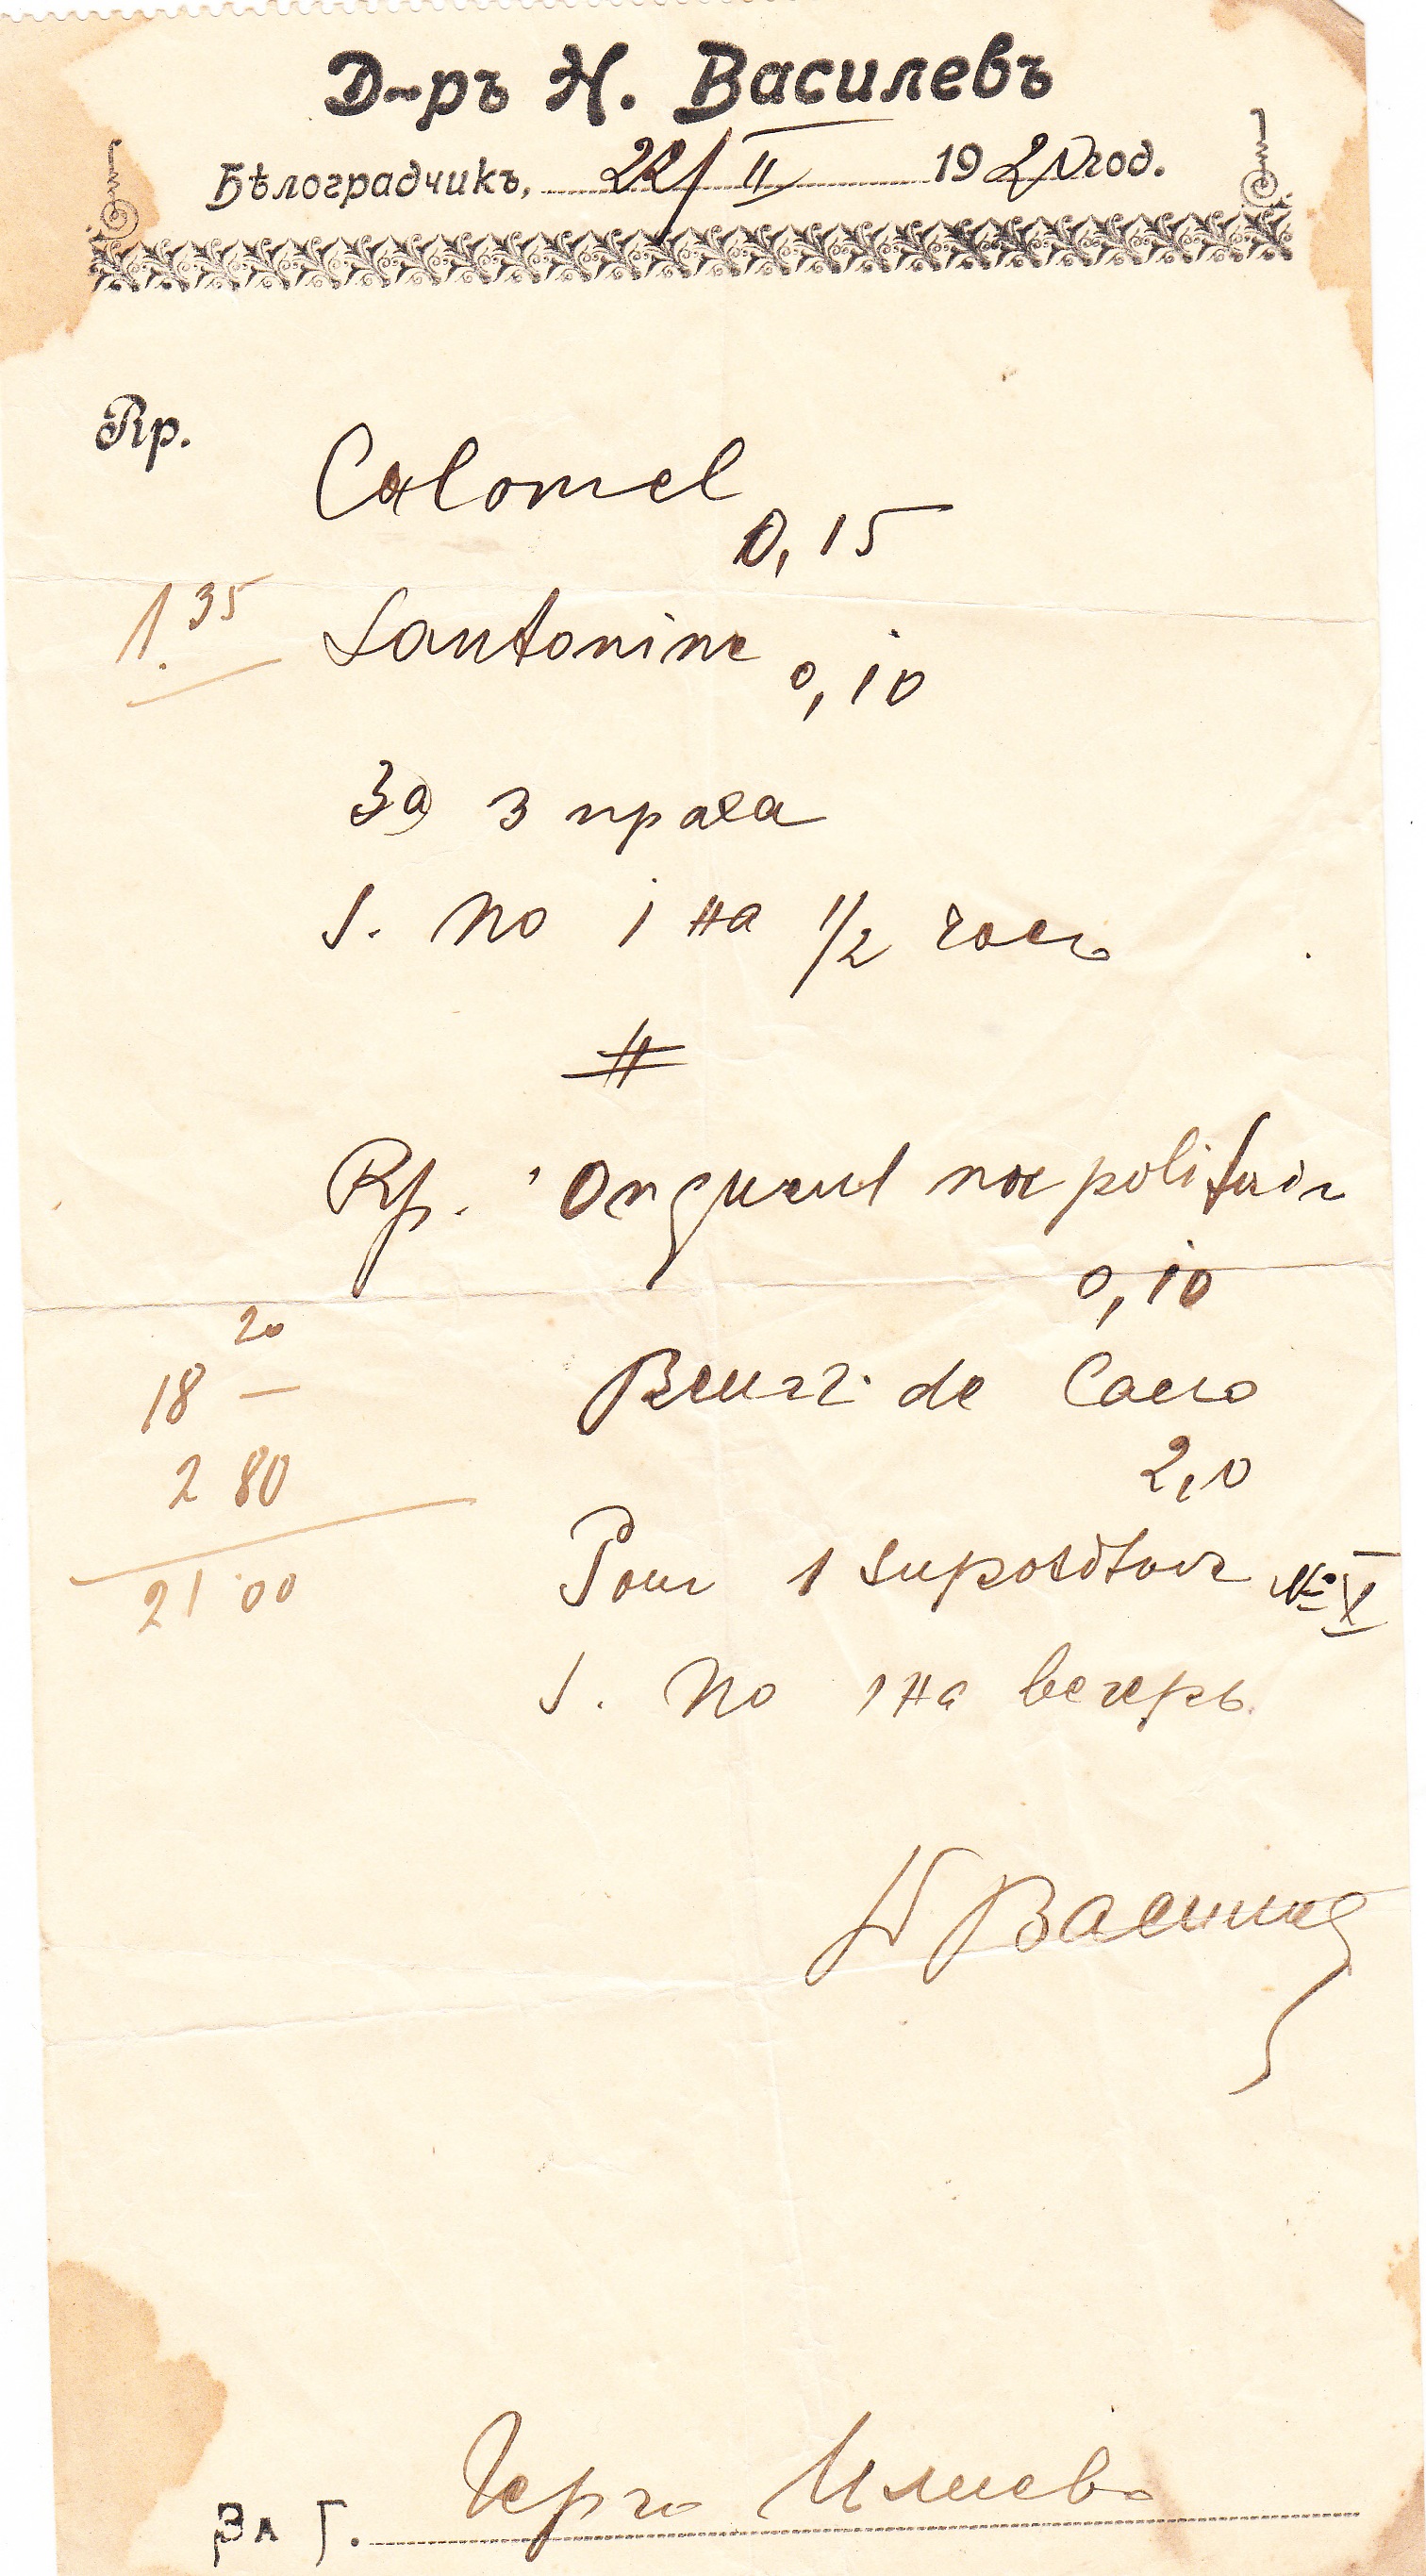 Д-ръ Н. Василевъ
Бѣлоградчикъ, 22/II 1920 год.
Rp.
Calomel
0,15
1.35
Santonine
0,10
За 3 праха
S. По 1 на 1/2 часъ
#
Rp. Onguent napolitain
0,10
20
18 —
Beurr. de Cacao
2 80
2,0
21.00
Pour 1 supositoir № X
S. По 1 на вечерь.
Василев
За Г. Герго Илиевъ